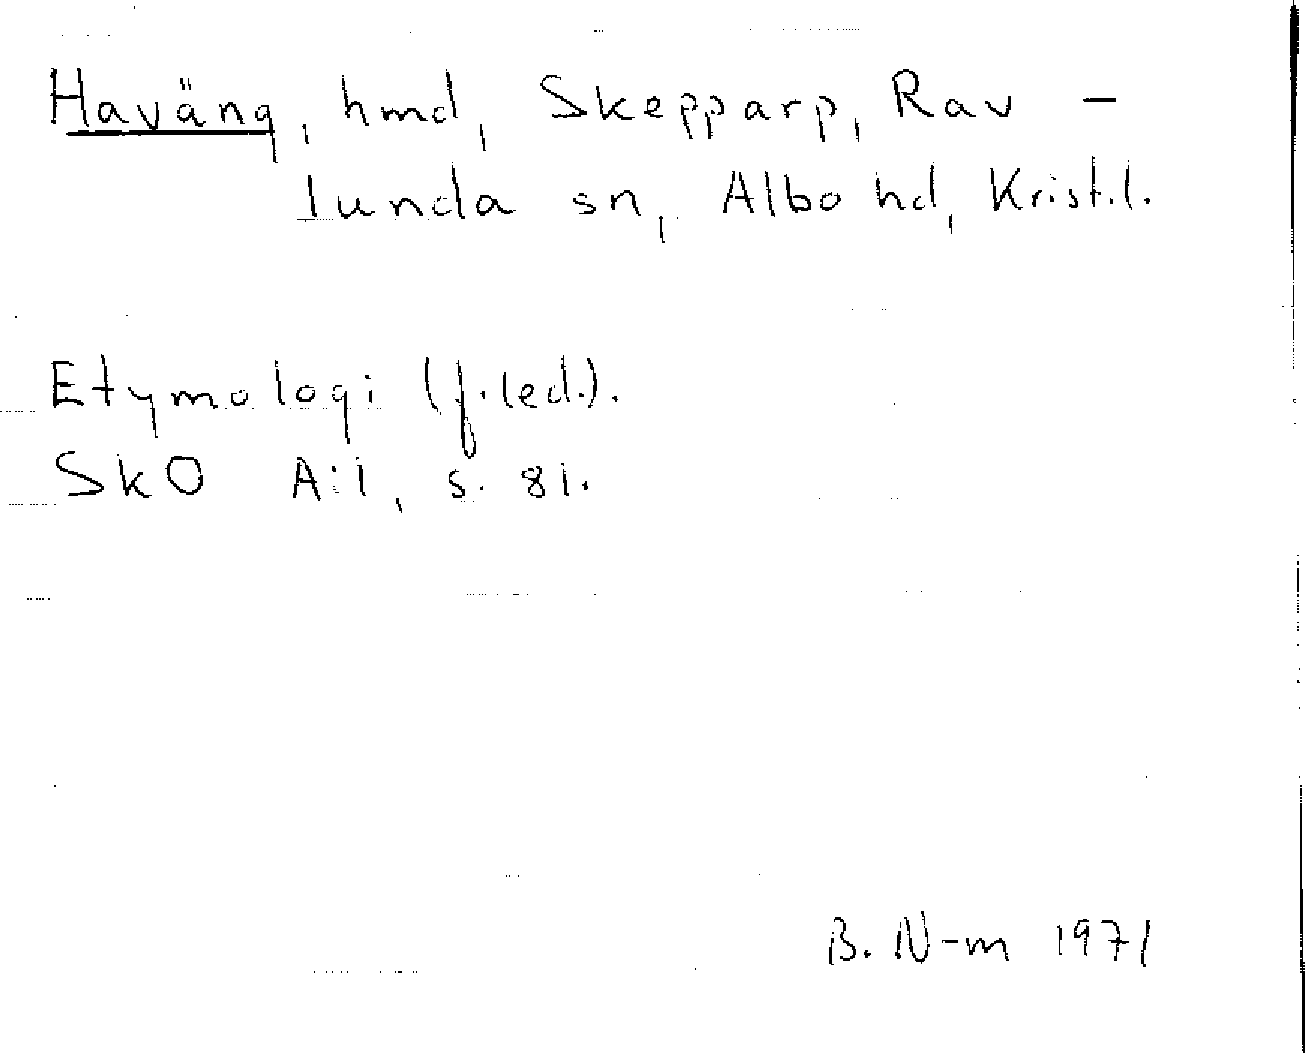 Haväng, hmd, Skepparp, Rav-
lunda sn, Albo hd, Krist.l.
Etymologi (f.led.).
SkO A:1, s. 81.
B. N-m 1971